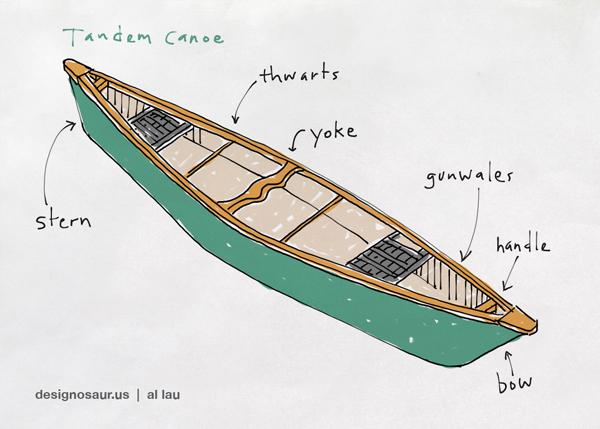 Tandem Canoe
thwarts
yoke
gunwales
handle
stern
bow
designosaur.us | al lau